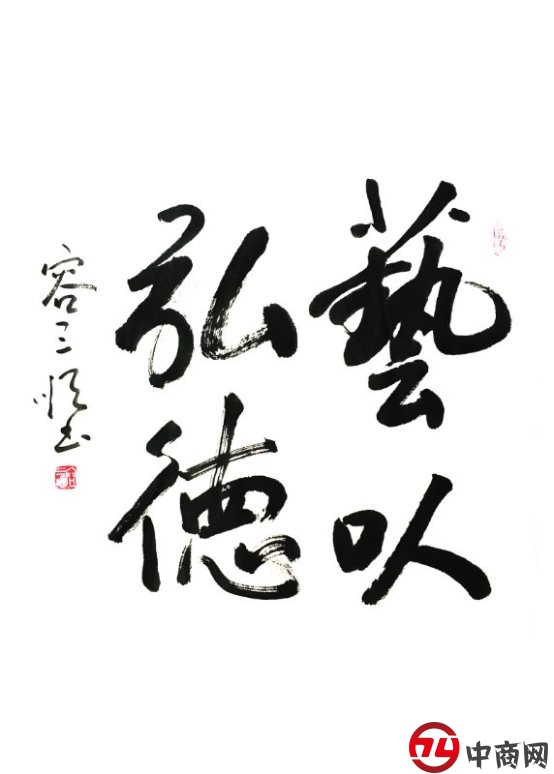 藝以
弘德
容三书
中商网